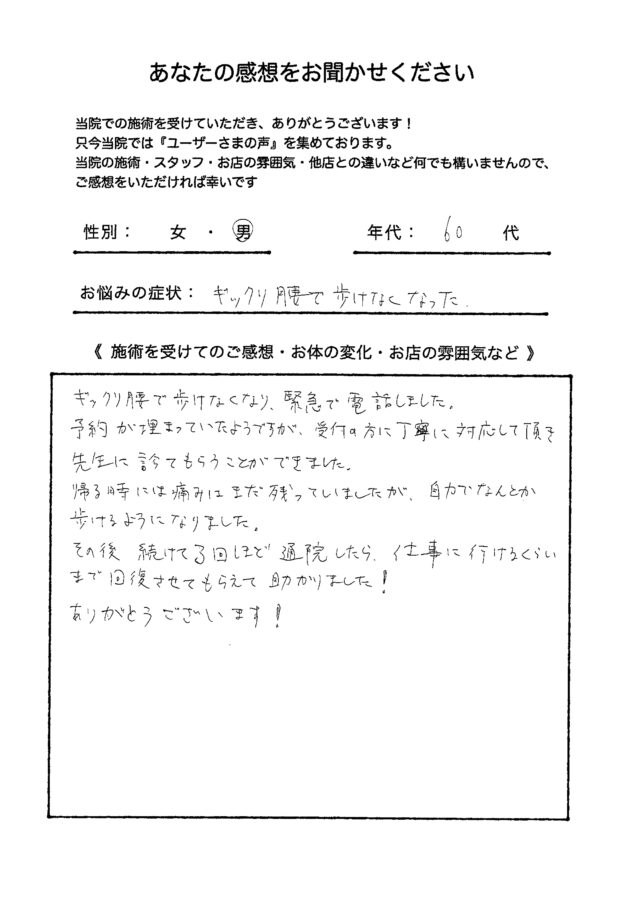 あなたの感想をお聞かせください
当院での施術を受けていただき、ありがとうございます！
只今当院では『ユーザーさまの声』を集めております。
当院の施術・スタッフ・お店の雰囲気・他店との違いなど何でも構いませんので、
ご感想をいただければ幸いです
性別： 女 ・ 男 年代： 60 代
お悩みの症状： ギックリ腰で歩けなくなった.
《 施術を受けてのご感想・お体の変化・お店の雰囲気など 》
ギックリ腰で歩けなくなり、緊急で電話しました。
予約が埋まっていたようですが、受付の方に丁寧に対応して頂き
先生に診てもらうことができました。
帰る時には痛みはまだ残っていましたが、自力でなんとか
歩けるようになりました。
その後 続けて3回ほど通院したら、仕事に行けるくらい
まで回復させてもらえて助かりました！
ありがとうございます！